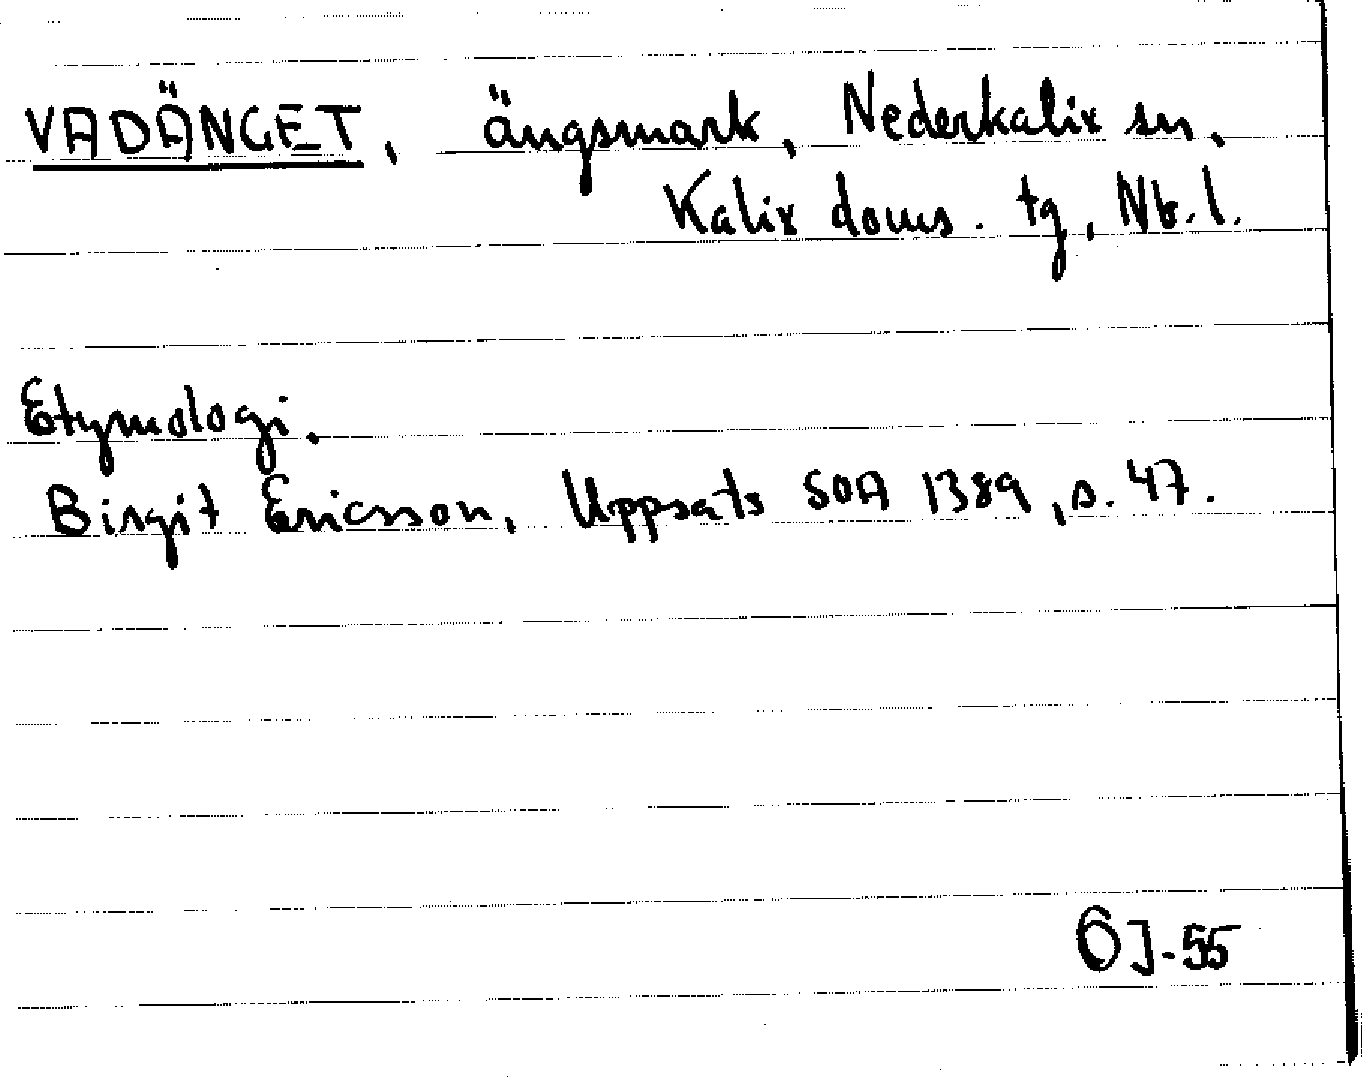 VADÄNGET, ängsmark, Nederkalix sn,
Kalix doms. tg, Nb. l.
Etymologi.
Birgit Ericsson, Uppsats SOA 1389, s. 47.
ÖJ-55